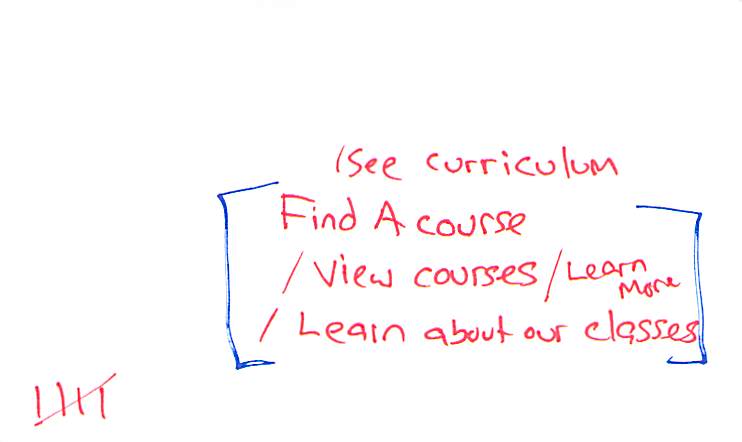 /See curriculum
Find A course
/ View courses / Learn More
/ Learn about our classes